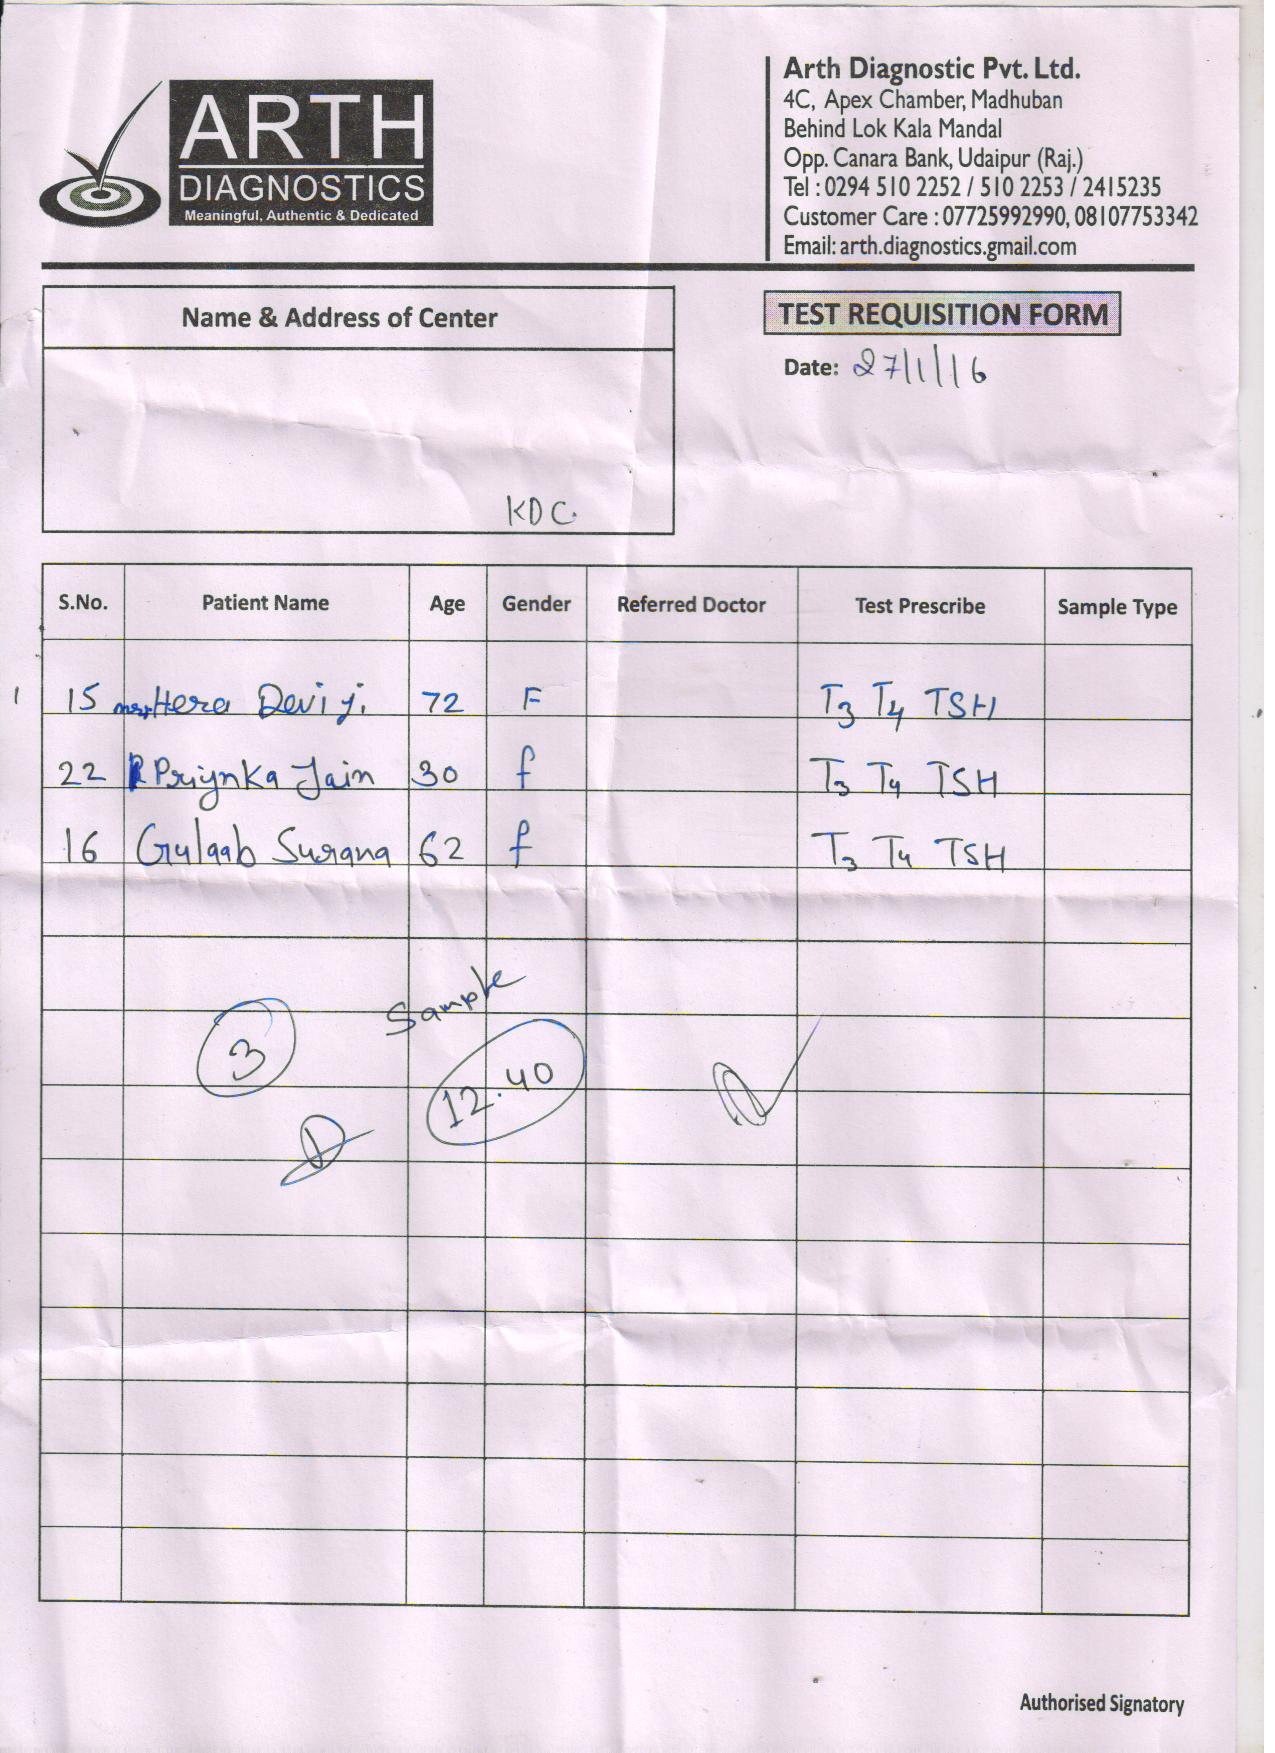 ARTH
DIAGNOSTICS
Meaningful, Authentic & Dedicated
Arth Diagnostic Pvt. Ltd.
4C, Apex Chamber, Madhuban
Behind Lok Kala Mandal
Opp. Canara Bank, Udaipur (Raj.)
Tel : 0294 510 2252 / 510 2253 / 2415235
Customer Care : 07725992990, 08107753342
Email: arth.diagnostics.gmail.com
Name & Address of Center
KDC.
TEST REQUISITION FORM
Date: 27/1/16
S.No. Patient Name Age Gender Referred Doctor Test Prescribe Sample Type
1 15 Hera Devi ji. 72 F T3 T4 TSH
22 Priynka Jain 30 f T3 T4 TSH
16 Gulaab Surana 62 f T3 T4 TSH
3 Sample
12.40
Authorised Signatory